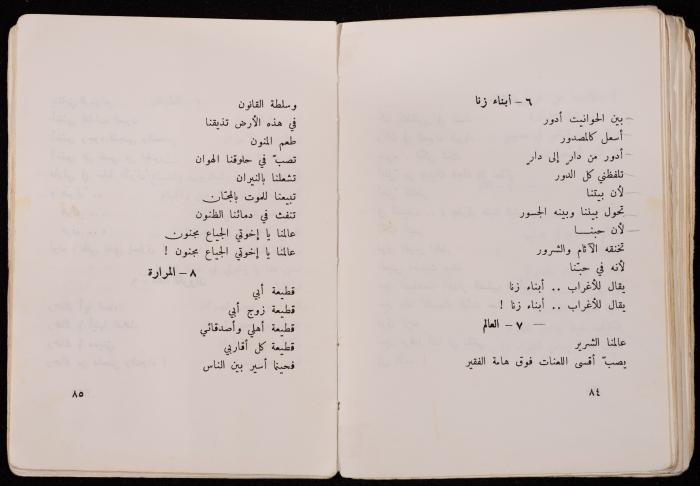 ٦ - أبناء زنا
بين الحوانيت أدور
أسعل كالمصدور
أدور من دارٍ إلى دارٍ
تلفظني كل الدور
لأن بيتنا
تحول بيننا وبينه الجسور
لأن حبنـــا
تخنقه الآثام والشرور
لأنه في حبّنا
يقال للأغراب .. أبناء زنا
يقال للأغراب .. أبناء زنا !
٧ - العالم
عالمنا الشرير
يصبّ أقسى اللعنات فوق هامة الفقير
٨٤
وسلطة القانون
في هذه الأرض تذيقنا
طعم المنون
تصبّ في حلوقنا الهوان
تشعلنا بالنيران
تبيعنا للموت بالمجّان
تنفث في دمائنا الظنون
عالمنا يا إخوتي الجياع مجنون
عالمنا يا إخوتي الجياع مجنون !
٨ - المرارة
قطيعة أبي
قطيعة زوج أبي
قطيعة أهلي وأصدقائي
قطيعة كل أقاربي
فحينما أسير بين الناس
٨٥